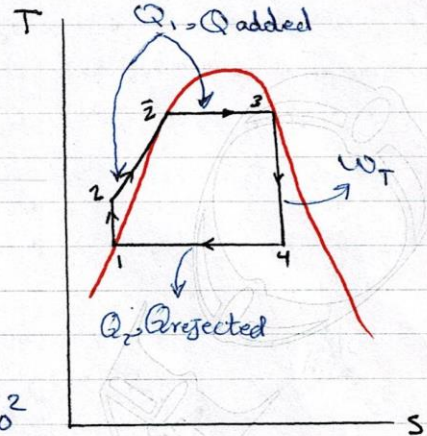 T
Q₁, Q added
2̄
3
2
W_T
1
4
Q₂, Q rejected
0²
S